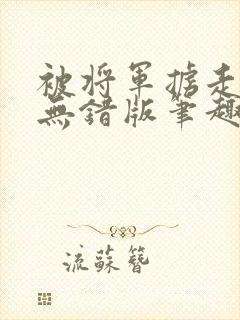 被将军掳走
無錯版筆趣
流蘇簪